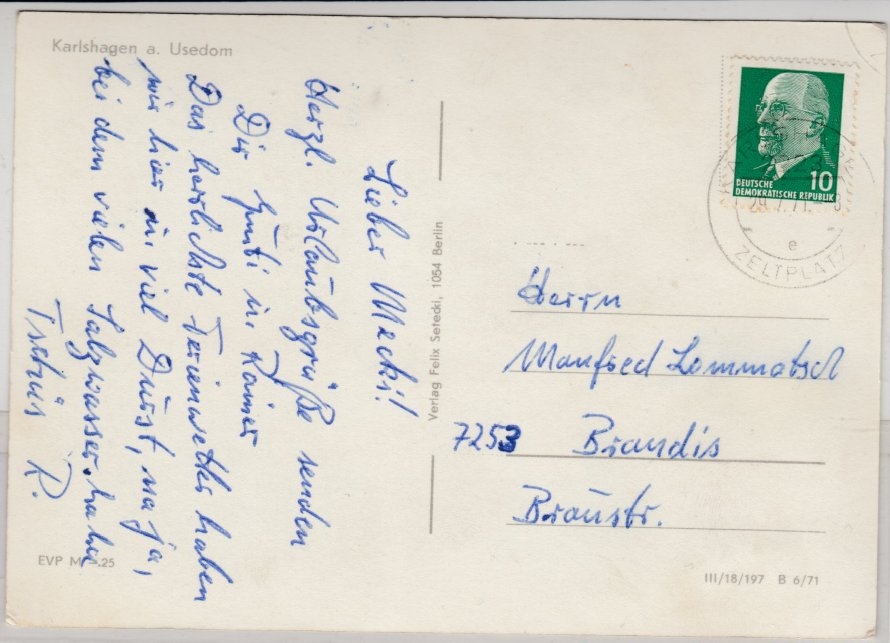 Karlshagen a. Usedom
Lieber Mecki!
Herzl. Urlaubsgrüße senden
Dir Gunti u. Rainer
Das herrlichste Ferienwetter haben
wir hier u. viel Durst, na ja,
bei dem vielen Salzwasser. haha
Tschüs R.
EVP M 0.25
Verlag Felix Setecki, 1054 Berlin
10
DEUTSCHE
DEMOKRATISCHE REPUBLIK
29.7.71
e
ZELTPLATZ
Herrn
Manfred Lommatsch
7253 Brandis
Braustr.
III/18/197 B 6/71